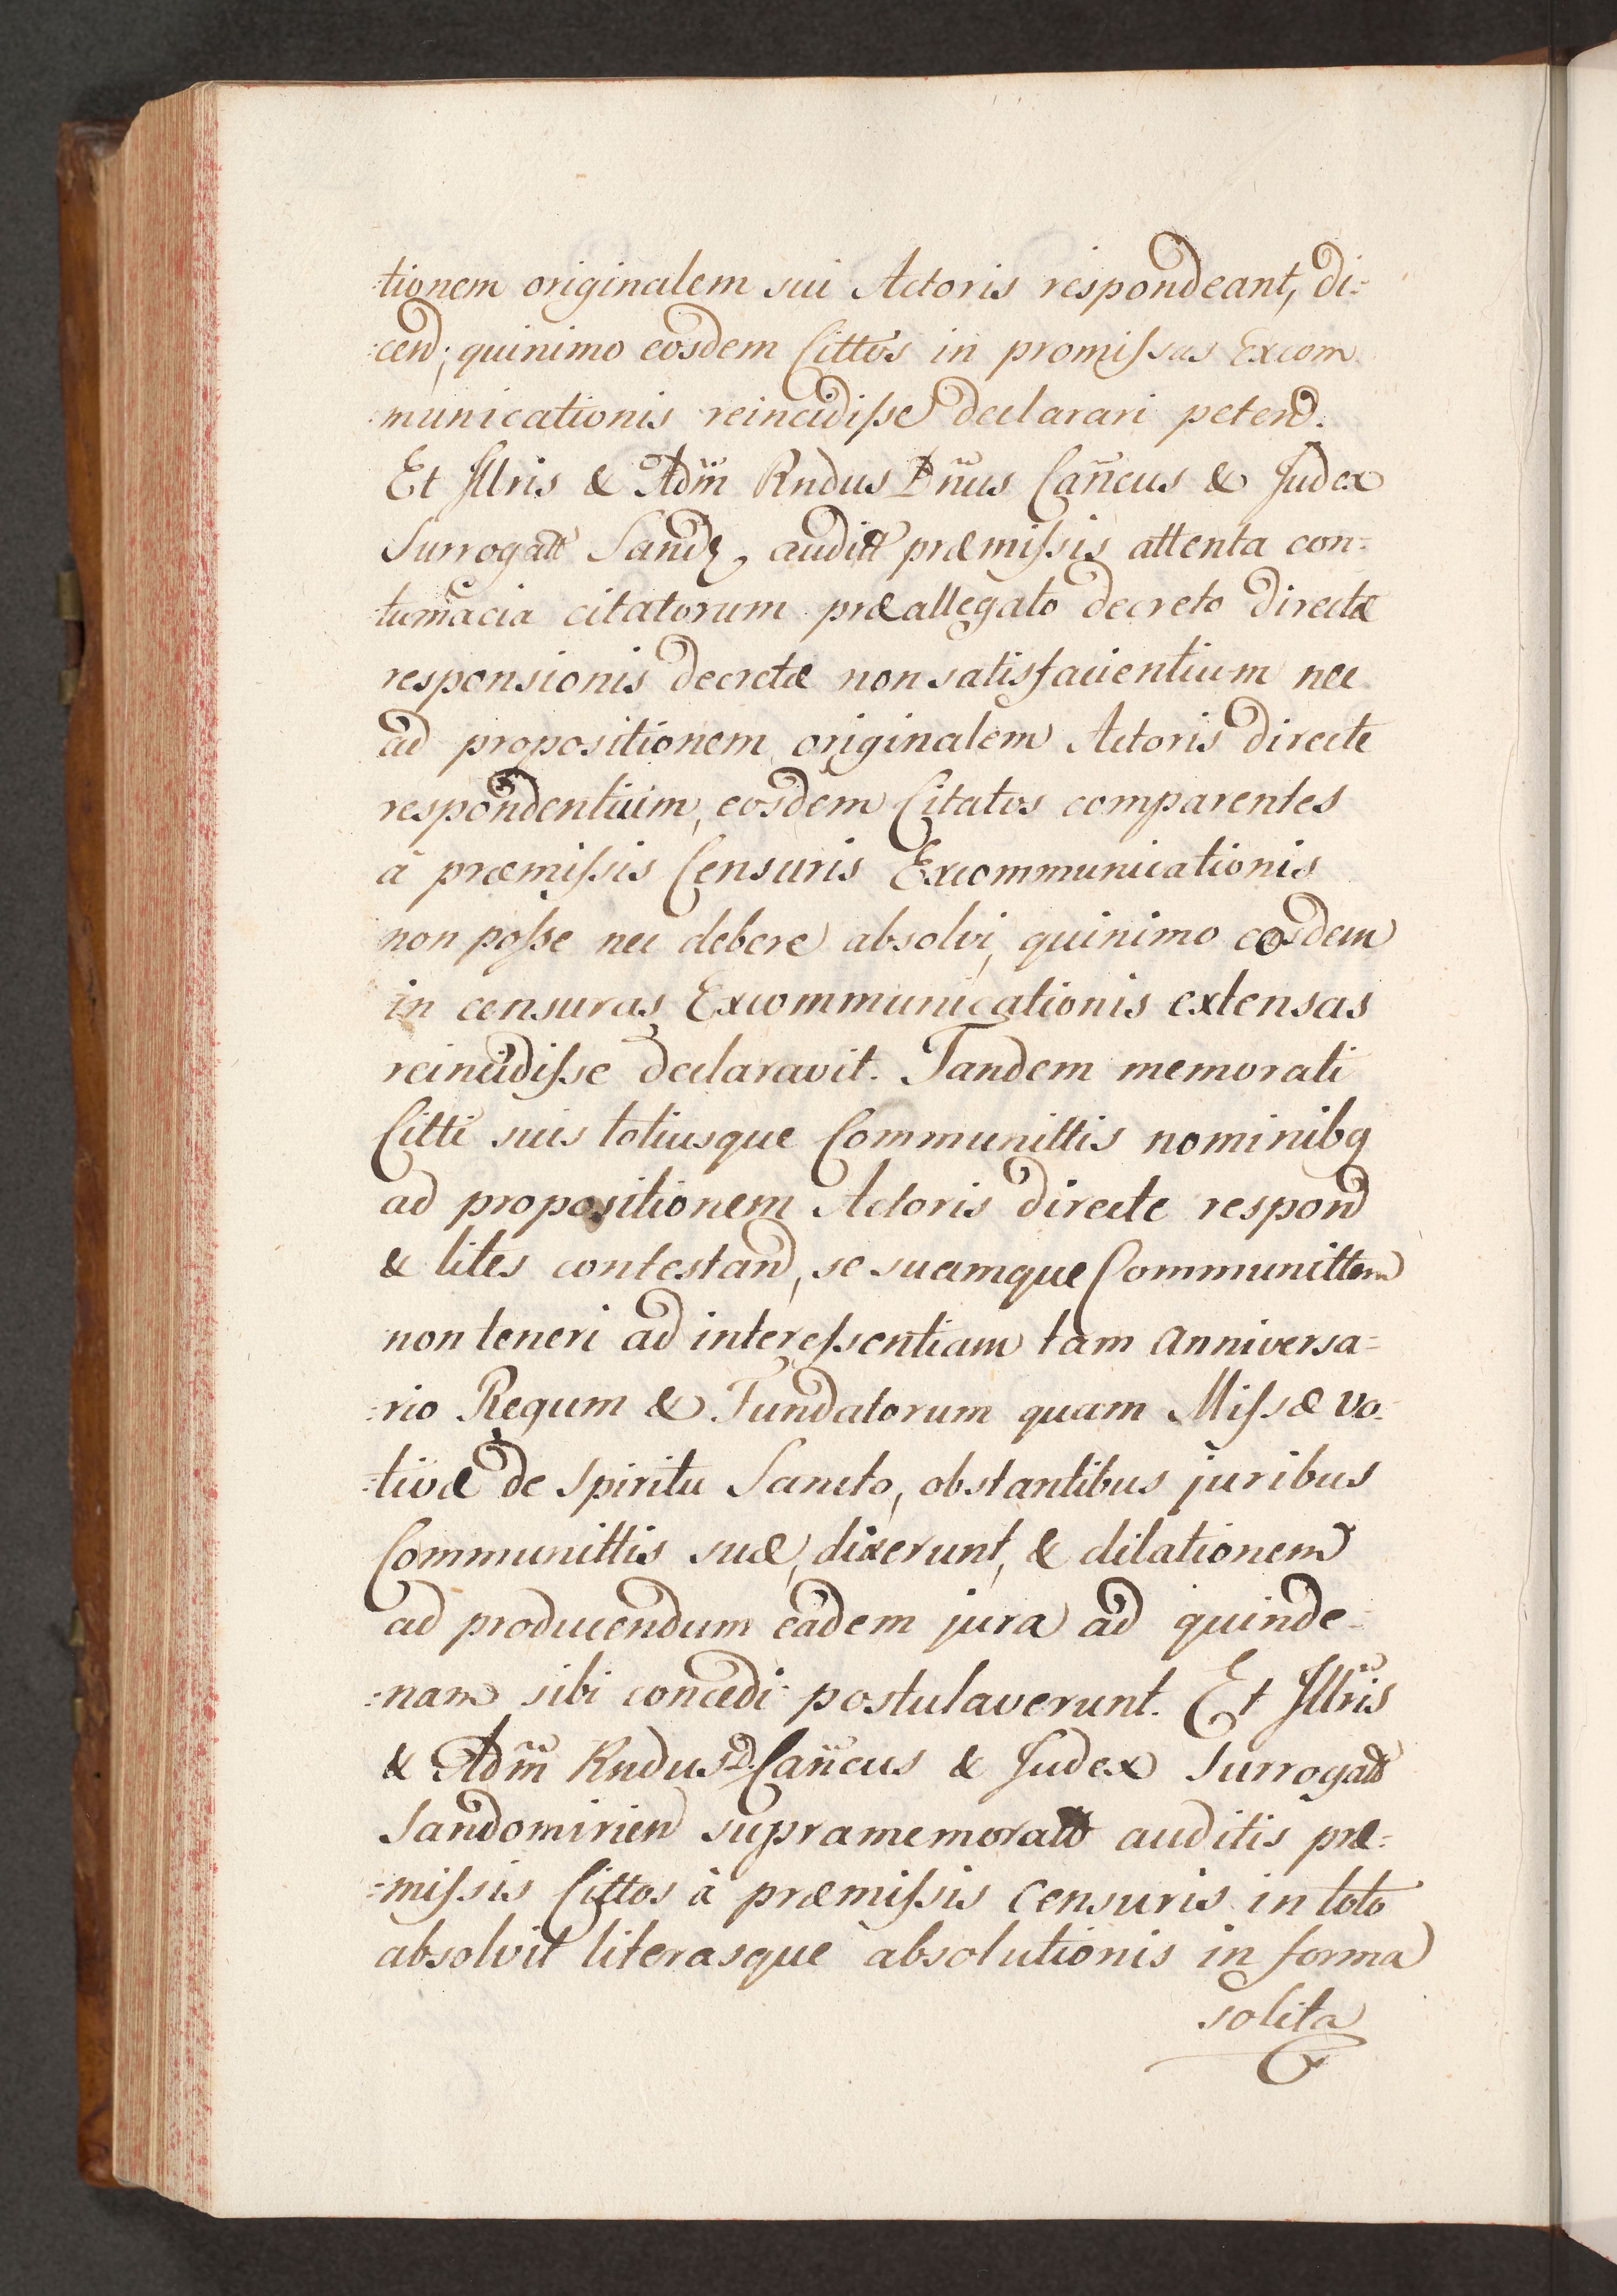 :tionem originalem sui Actoris respondeant, di:
:cend; quinimo eosdem Cittos in promiſsas Excom
municationis reincidiſse declarari petend.
Et Jllris & Adm̃ Rndus Dñus Cañcus & Judex
Surrogatt Sandɀ, auditt præmiſsis attenta con:
:tumacia citatorum præallegato decreto directæ
responsionis decretæ non satisfacientium nec
ad propositionem originalem Actoris directe
respondentium, eosdem Citatos comparentes
à præmiſsis Censuris Excommunicationis
non poſse nec debere absolvi, quinimo eosdem
in censuras Excommunicationis extensas
reincidiſse declaravit. Tandem memorati
Citti suis totiusque Communittis nominibq
ad propositionem Actoris directe respond
& lites contestand, se suamque Communittem
non teneri ad intereſsentiam tam Anniversa=
:rio Regum & Fundatorum quam Miſsæ vo:
:tivæ de Spiritu Sancto, obstantibus juribus
Communittis suæ, dixerunt, & dilationem
ad producendum eadem jura ad quinde=
:nam sibi concedi postulaverunt. Et Jllr̃is
& Adm̃ Rndus D. Cañcus & Judex Surrogatt
Sandomirien supramemoratt auditis præ:
:miſsis Cittos à præmiſsis Censuris in toto
absolvit literasque absolutionis in forma
solita